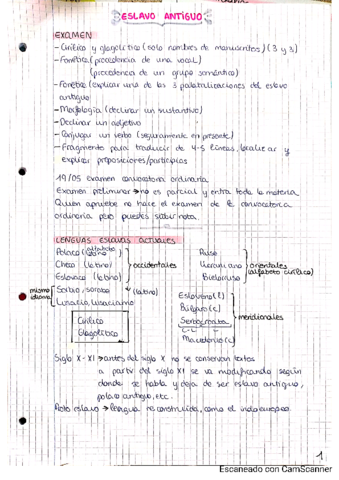 ESLAVO ANTIGUO
EXAMEN
- Cirílico y glagolítico (solo nombres de manuscritos) (3 y 3)
- Fonética (procedencia de una vocal)
(procedencia de un grupo semántico)
- Fonética (explicar una de las 3 palatalizaciones del eslavo
antiguo)
- Morfología (declinar un sustantivo)
- Declinar un adjetivo
- Conjugar un verbo (seguramente en presente)
- Fragmento para traducir de 4-5 líneas, localizar y
explicar preposiciones/participios
19/05 examen convocatoria ordinaria.
Examen preliminar → no es parcial y entra toda la materia.
Quien apruebe no hace el examen de la convocatoria
ordinaria pero puedes subir nota.
LENGUAS ESLAVAS ACTUALES
Polaco (alfabeto latino)
Checo (latino)
Eslovaco (latino)
occidentales
mismo idioma
Serbio, sorabo (latino)
Lusacio, lusaciano
Cirílico
Glagolítico
Ruso
Ucraniano
Bielorruso
orientales
(alfabeto cirílico)
Esloveno (l)
Búlgaro (c)
Serbocroata
C - L
Macedonio (c)
meridionales
Siglo X - XI → antes del siglo X no se conservan textos
a partir del siglo XI se va modificando según
donde se habla y deja de ser eslavo antiguo,
polaco antiguo, etc.
Proto eslavo → lengua reconstruida, como el indoeuropeo.
1
Escaneado con CamScanner